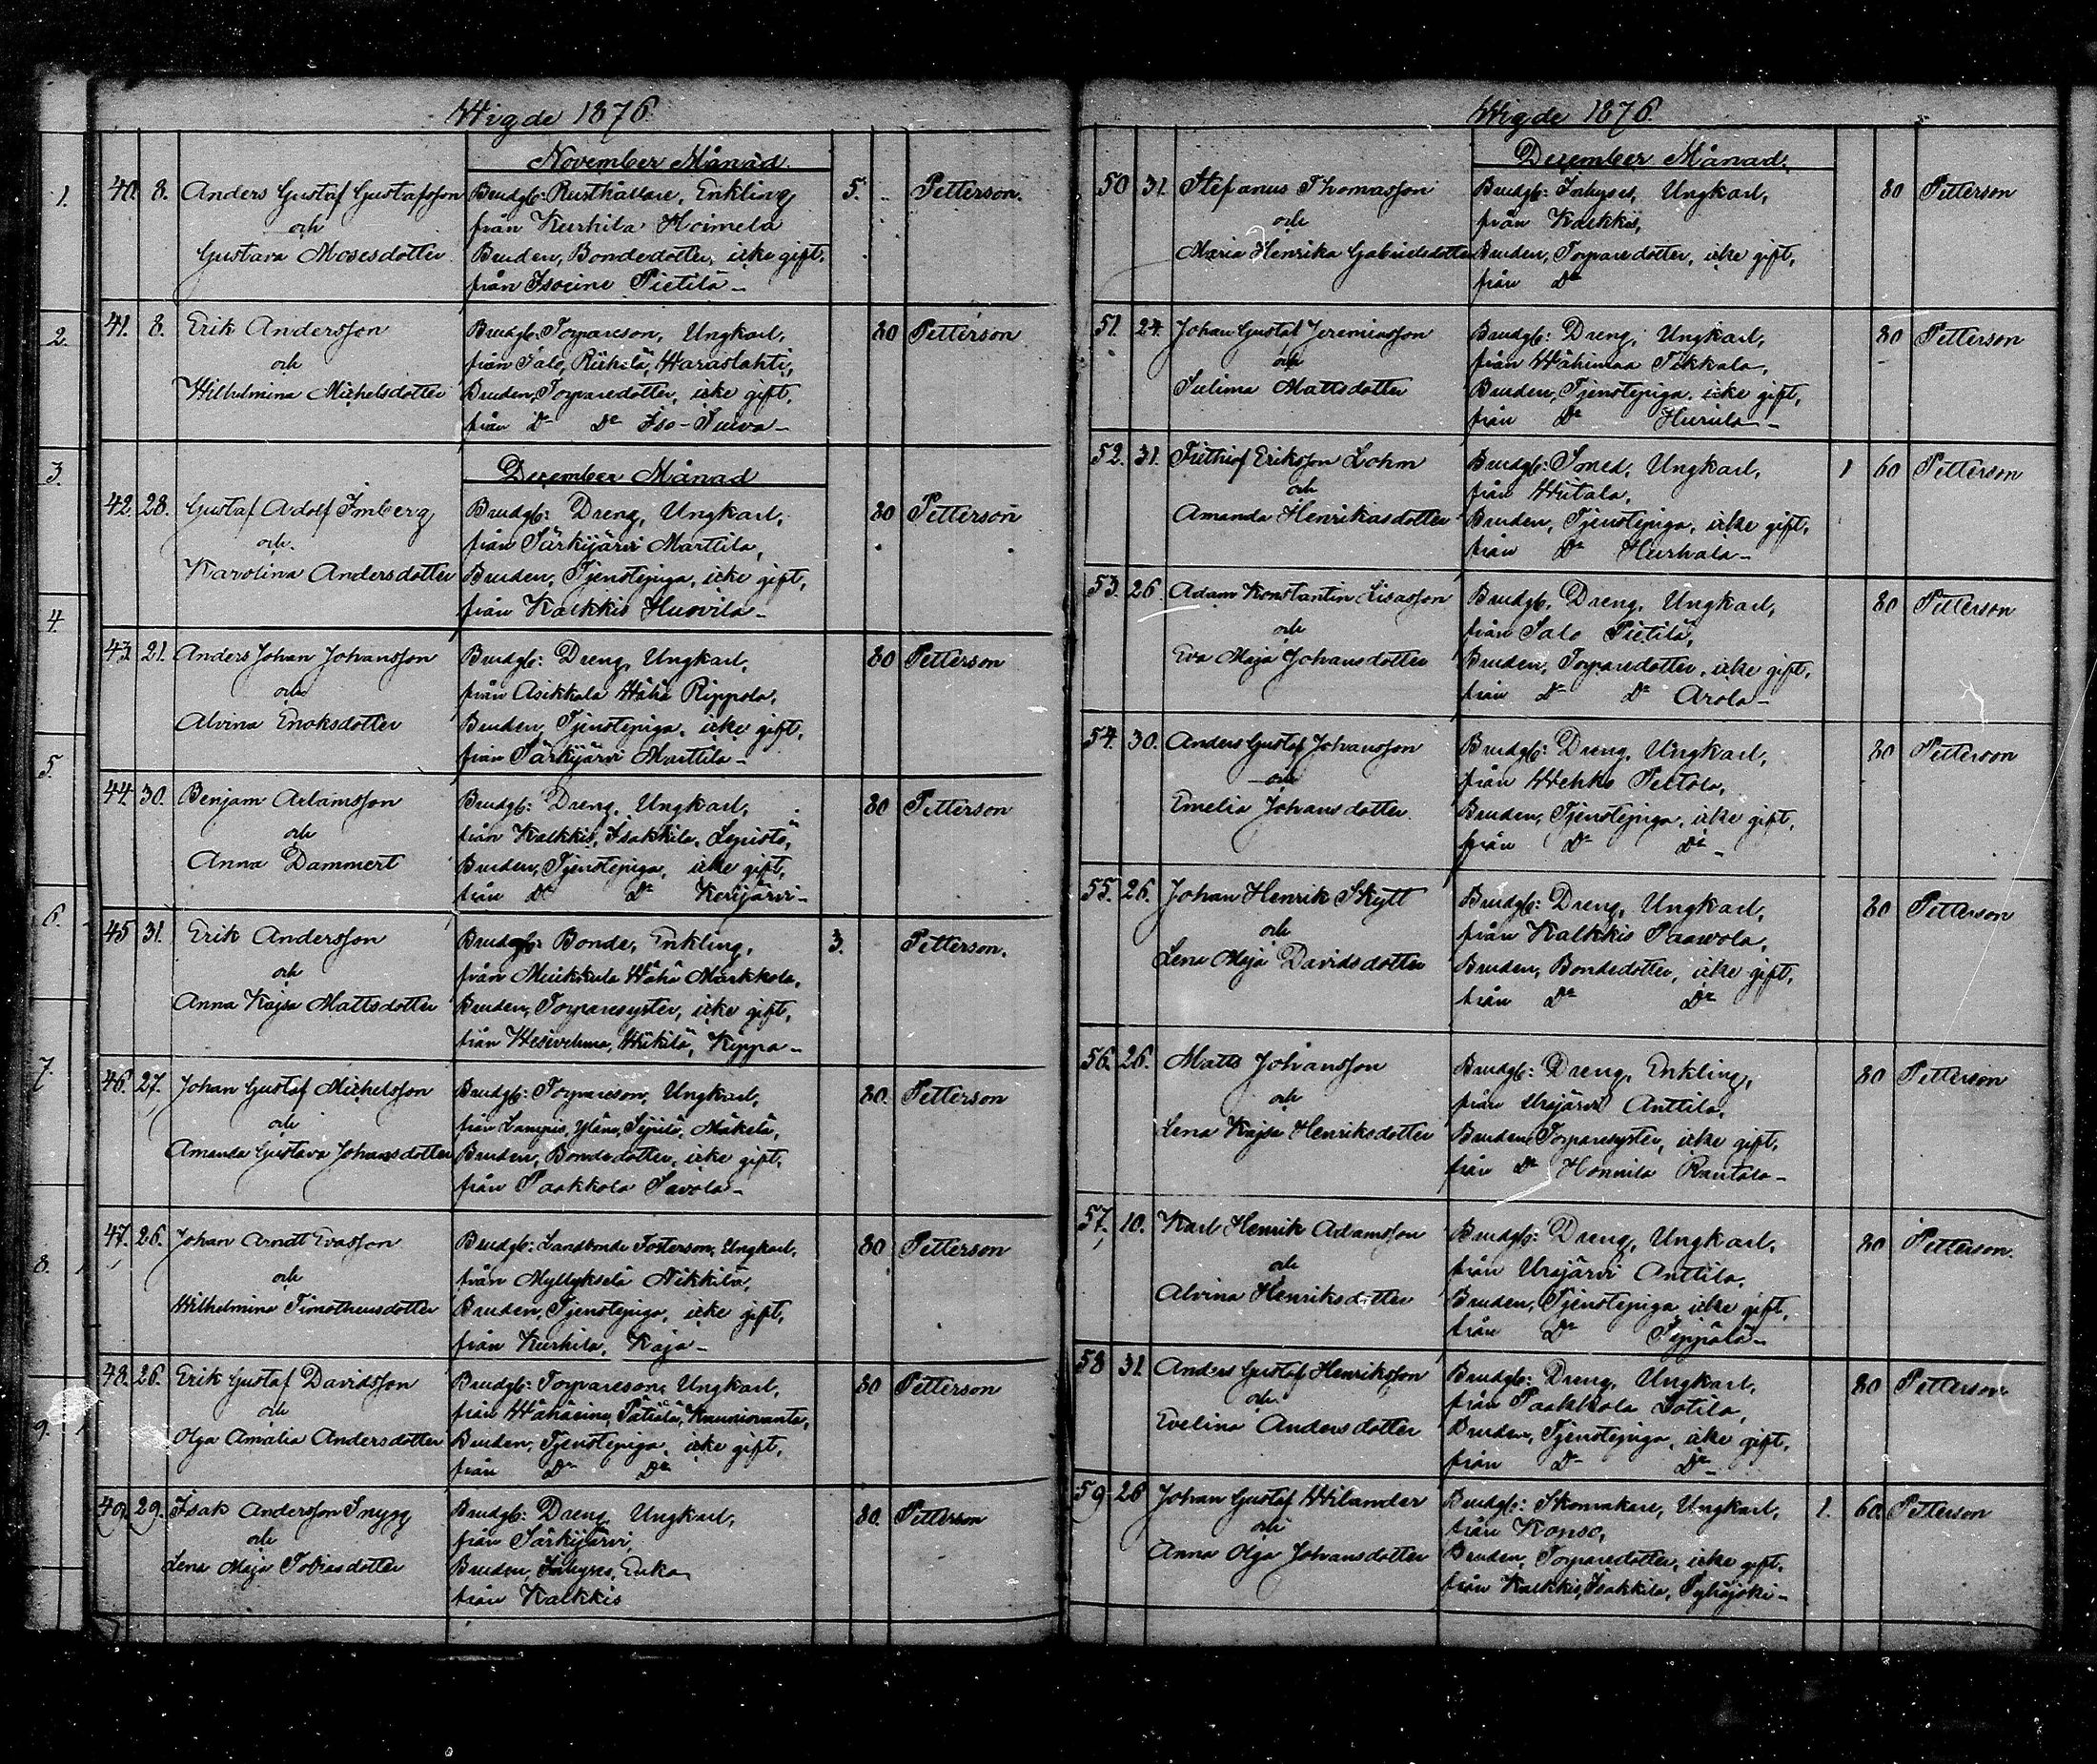 Wigde 1876
November Månad
1. 40. 8. Anders Gustaf Gustafsson Brudg: Rusthållare, Enkling 5. Petterson.
och från Kurhila Hoimela
Gustava Mosesdotter Bruden, Bondedotter, icke gift,
från Isoeine Pietilä
2. 41. 8. Erik Andersson Brudg: Torpareson, Ungkarl, 80 Petterson
och från Salo,
Wilhelmina Michelsdotter Bruden, Torparedotter, icke gift,
från Do Do Iso-
December Månad
3. 42. 28. Gustaf Adolf Imberg Brudg: Dreng, Ungkarl, 80 Petterson
och från Särkijärvi Marttila,
Karolina Andersdotter Bruden, Tjenstepiga, icke gift,
från Kalkkis Husvila
4. 43. 21. Anders Johan Johansson Brudg: Dreng, Ungkarl, 80 Petterson
och från Asikkala Wähä Rippola,
Alvina Enoksdotter Bruden, Tjenstepiga, icke gift,
från Särkijärvi Marttila
5. 44. 30. Benjam Adamsson Brudg: Dreng, Ungkarl, 80 Petterson
och från Kalkkis, Isakkila, Lepistö,
Anna Dammert Bruden, Tjenstepiga, icke gift,
från Do Do Kerijärvi
6. 45 31. Erik Andersson Brudg: Bonde, Enkling, 3. Petterson.
och från Muikkula Wähä Markkola,
Anna Kajsa Mattsdotter Bruden, Torparesyster, icke gift,
från Wesivehma,
7. 46. 27. Johan Gustaf Michelsson Brudg: Torpareson, Ungkarl, 80. Petterson
och från Lampis, Mäkelä,
Amanda Gustava Johansdotter Bruden, Bondedotter, icke gift,
från Paakkola Savola
8. 47. 26. Johan Arndt Evasson Brudg: Landbonde Fosterson, Ungkarl, 80 Petterson
och från Myllykselä Nikkilä,
Wilhelmina Timotheusdotter Bruden, Tjenstepiga, icke gift,
från Kurhila, Kaja
9. 48. 26. Erik Gustaf Davidsson Brudg: Torpareson, Ungkarl, 80 Petterson
och från Wähäeine,
Olga Amalia Andersdotter Bruden, Tjenstepiga, icke gift,
från Do Do
49. 29. Isak Andersson Snygg Brudg: Dreng, Ungkarl, 80. Petterson
och från Särkijärvi,
Lena Maja Tobiasdotter Bruden, Inhyses, Enka,
från Kalkkis
Wigde 1876.
December Månad.
50 31. Stefanus Thomasson Brudg: Inhyses, Ungkarl, 80 Petterson
och från Kalkkis,
Maria Henrika Gabrielsdotter Bruden, Torparedotter, icke gift,
från Do
51. 24. Johan Gustaf Jeremiasson Brudg: Dreng, Ungkarl, 80 Petterson
och från Wähimaa Tikkala,
Sulima Mattsdotter Bruden, Tjenstepiga, icke gift,
från Do
52. 31. Frithiof Eriksson Lohm Brudg: Smed, Ungkarl, 1 60 Petterson
och från
Amanda Henrikasdotter Bruden, Tjenstepiga, icke gift,
från Do
53. 26 Adam Konstantin Lisasson Brudg: Dreng, Ungkarl, 80 Petterson
och från Salo Pietilä,
Eva Maja Johansdotter Bruden, Torparedotter, icke gift,
från Do Do Arola
54. 30. Anders Gustaf Johansson Brudg: Dreng, Ungkarl, 80 Petterson
och från Wehko Peltola,
Emelia Johansdotter Bruden, Tjenstepiga, icke gift,
från Do Do
55. 26. Johan Henrik Skytt Brudg: Dreng, Ungkarl, 80 Petterson
och från Kalkkis Paavola,
Lena Maja Davidsdotter Bruden, Bondedotter, icke gift,
från Do Do
56. 26. Matts Johansson Brudg: Dreng, Enkling, 80 Petterson
och från Urajärvi Anttila,
Lena Kajsa Henriksdotter Bruden, Torparesyster, icke gift,
från Do Honnila Rantala
57. 10. Karl Henrik Adamsson Brudg: Dreng, Ungkarl, 80 Petterson.
och från Urajärvi Anttila,
Alvina Henriksdotter Bruden, Tjenstepiga, icke gift,
från Do Seppälä
58 31. Anders Gustaf Henriksson Brudg: Dreng, Ungkarl, 80 Petterson
och från Paakkola Lotila,
Evelina Andersdotter Bruden, Tjenstepiga, icke gift,
från Do Do
59. 26 Johan Gustaf Wilander Brudg: Skomakare, Ungkarl, 1. 60 Petterson
och från Konso,
Anna Olga Johansdotter Bruden, Torparedotter, icke gift,
från Kalkkis, Isakkila, Pyhäjoki